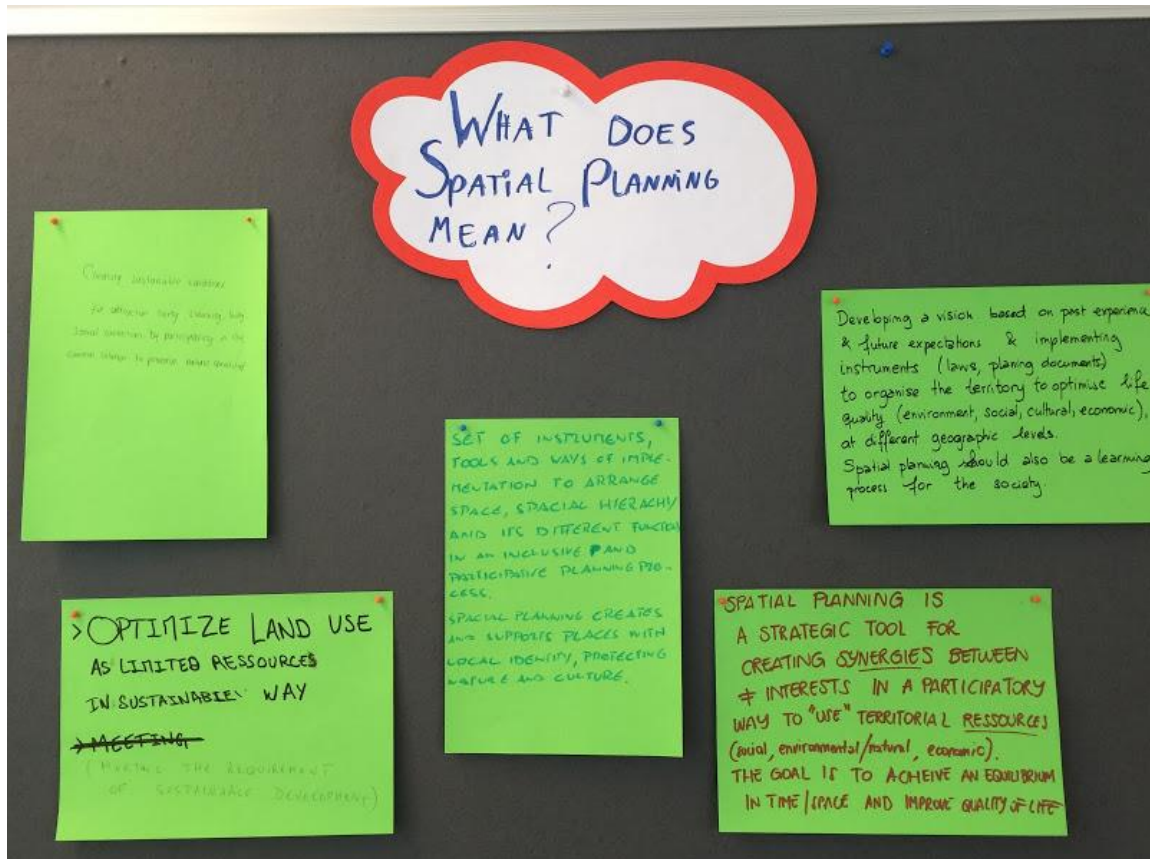 WHAT DOES
SPATIAL PLANNING
MEAN?
Creating sustainable
for attractive early planning
by participating in the
common
Developing a vision based on past experience
& future expectations & implementing
instruments (laws, planing documents)
to organise the territory to optimise life
quality (environment, social, cultural, economic),
at different geographic levels.
Spatial planning should also be a learning
process for the society.
SET OF INSTRUMENTS,
TOOLS AND WAYS OF IMPLE-
MENTATION TO ARRANGE
SPACE, SPACIAL HIERACHY
AND ITS DIFFERENT FUNCTIONS
IN AN INCLUSIVE AND
PARTICIPATIVE PLANNING PRO-
CESS.
SPACIAL PLANNING CREATES
AND SUPPORTS PLACES WITH
LOCAL IDENTITY, PROTECTING
NATURE AND CULTURE.
> OPTIMIZE LAND USE
AS LIMITED RESSOURCES
IN SUSTAINABLE WAY
> MEETING
(MEETING THE REQUIREMENT
OF SUSTAINABLE DEVELOPMENT)
SPATIAL PLANNING IS
A STRATEGIC TOOL FOR
CREATING SYNERGIES BETWEEN
≠ INTERESTS IN A PARTICIPATORY
WAY TO "USE" TERRITORIAL RESSOURCES
(social, environmental/natural, economic).
THE GOAL IS TO ACHEIVE AN EQUILIBRIUM
IN TIME/SPACE AND IMPROVE QUALITY OF LIFE